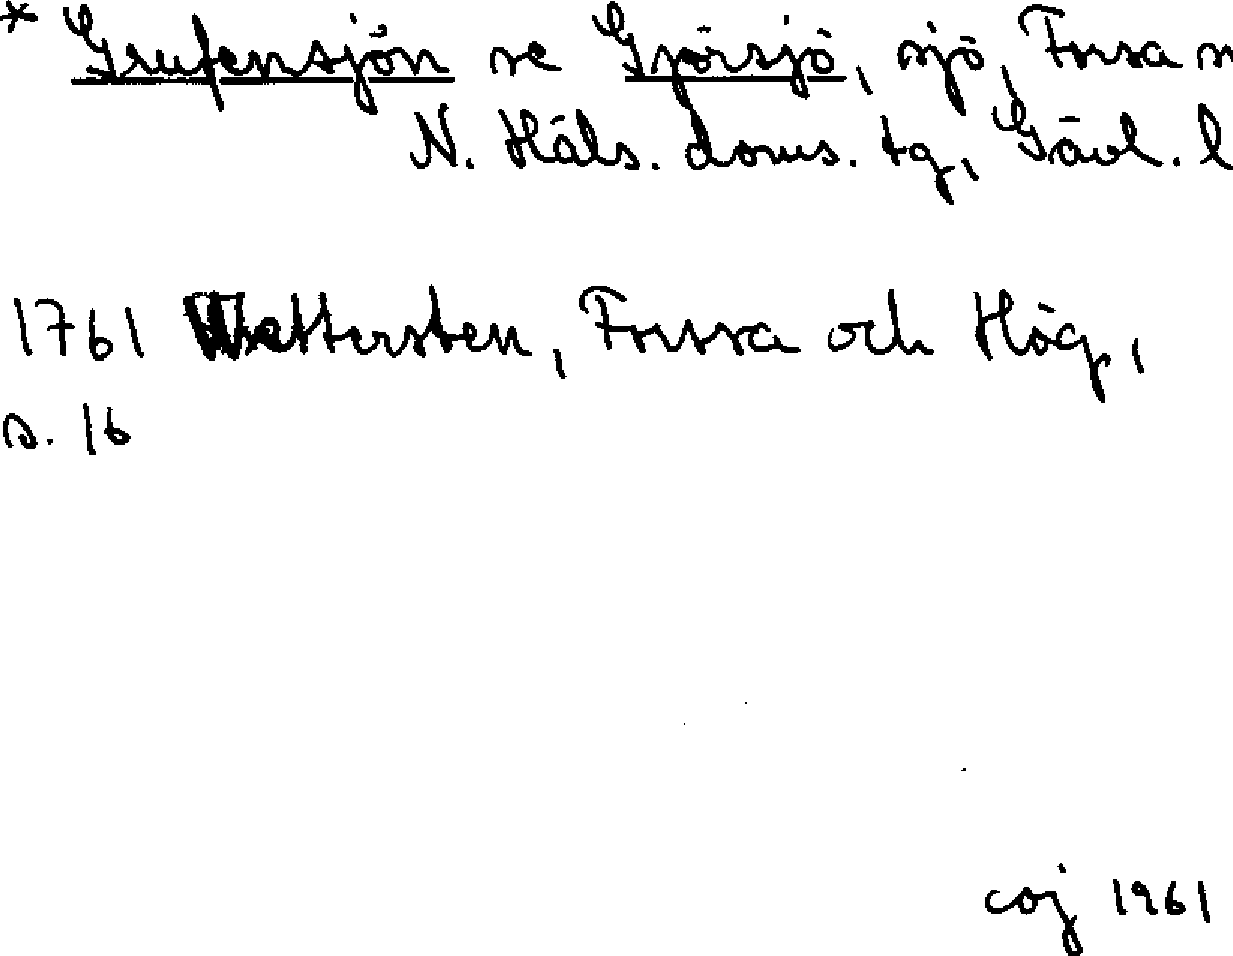 * Grufensjön se Gjörsjö, sjö, Forsa s
N. Häls. doms. tg, Gävl. l
1761 Wettersten, Forssa och Hög,
s. 16
coj 1961